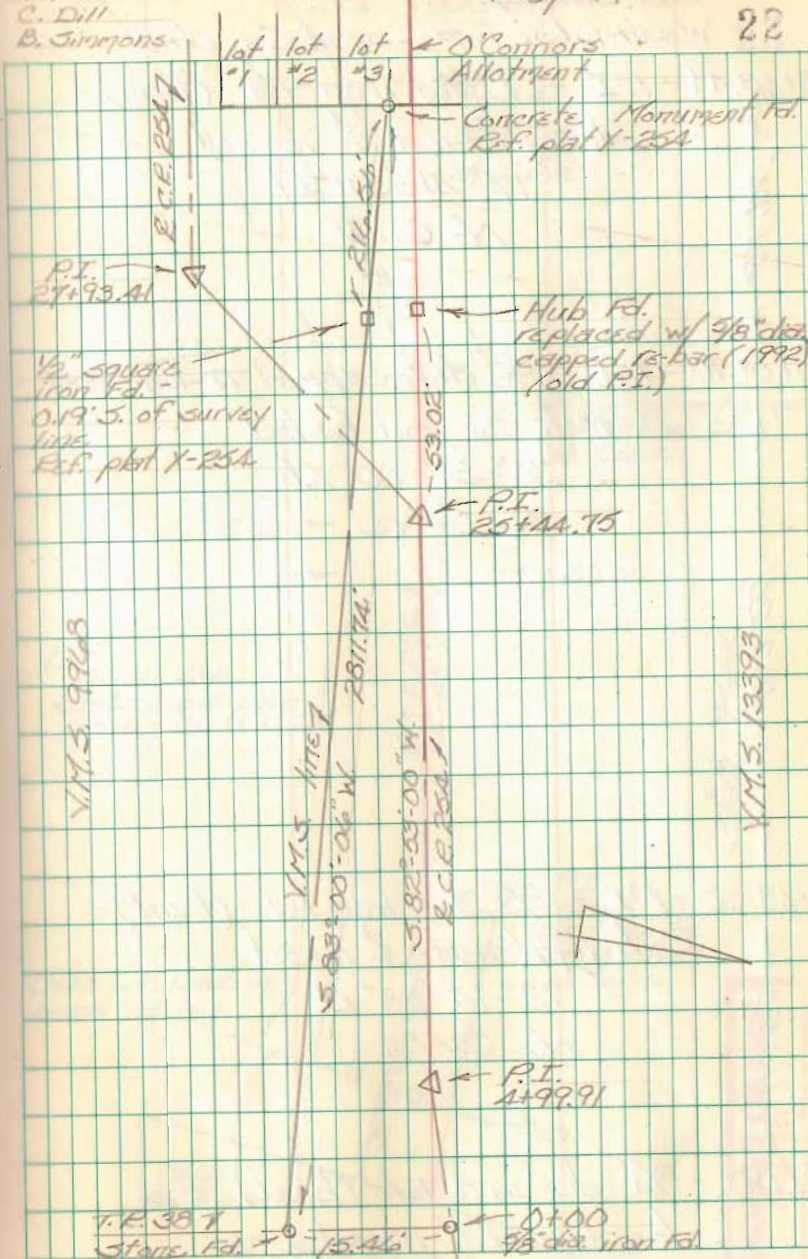 C. Dill
B. Simmons
22
lot #1
lot #2
lot #3
O'Connors
Allotment
Concrete Monument Fd.
Ref. plat Y-254
P.I.
27+93.41
Hub Fd.
replaced w/ 5/8" dia.
capped re-bar (1992)
(old P.I.)
1/2" square
iron Fd. -
0.19' S. of survey
line
Ref. plat Y-254
53.02'
P.I.
25+44.75
2811.74'
V.M.S.
V.M.S. 13393
V.M.S. line
S.83°-00'-06" W.
S.82°-53'-00" W.
P.I.
4+99.91
T.P. 38
Stone Fd.
15.46'
0+00
5/8" dia. iron Fd.